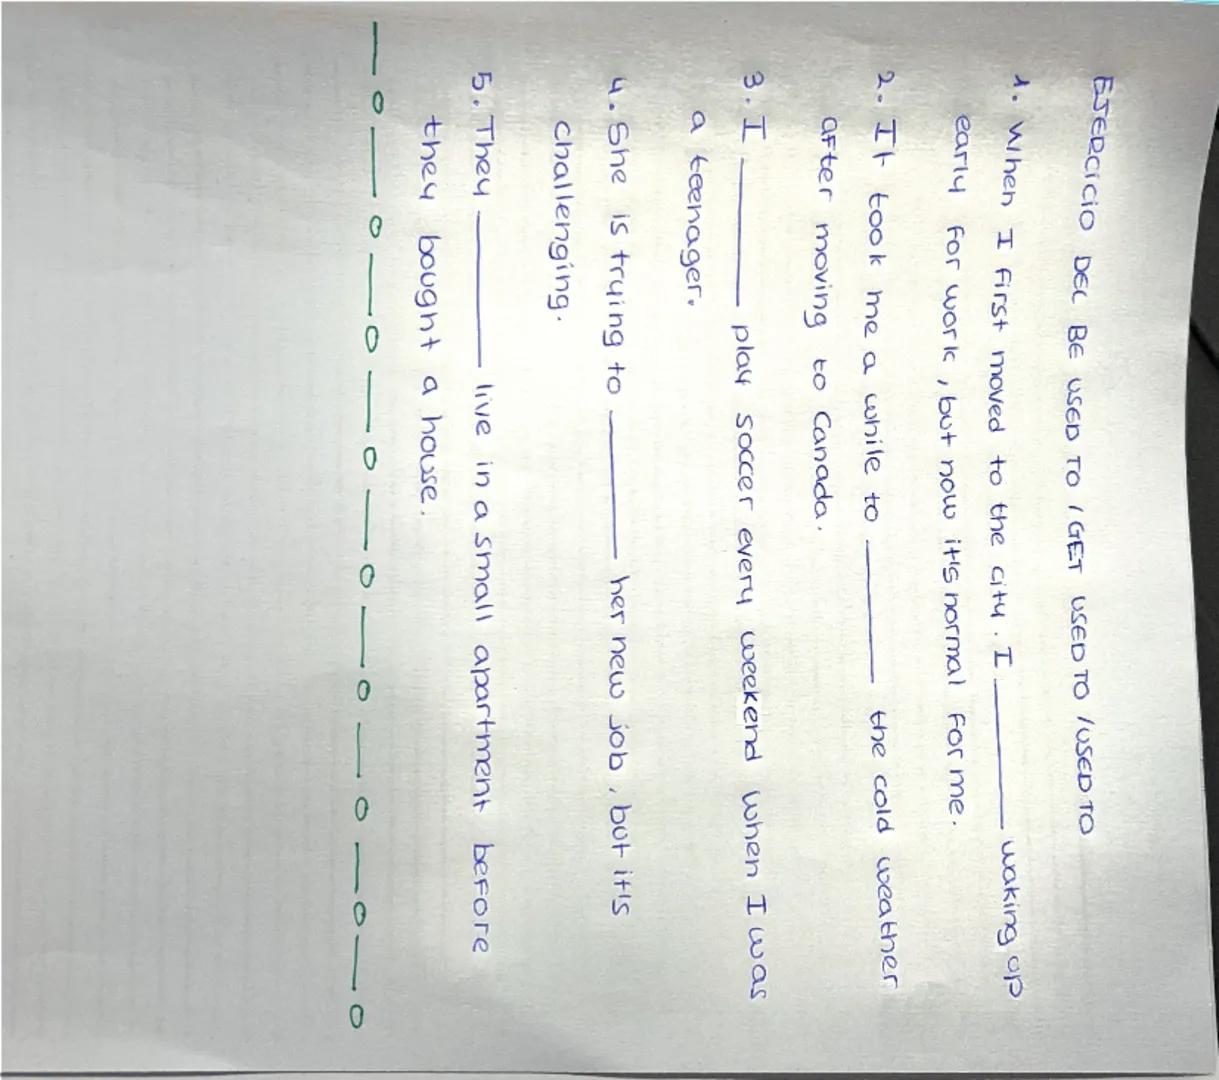 EJERCICIO DEL BE USED TO / GET USED TO / USED TO
1. When I first moved to the city. I ______ waking up
early for work, but now it's normal for me.
2. It took me a while to ______ the cold weather
after moving to Canada.
3. I ______ play soccer every weekend when I was
a teenager.
4. She is trying to ______ her new job, but it's
challenging.
5. They ______ live in a small apartment before
they bought a house.